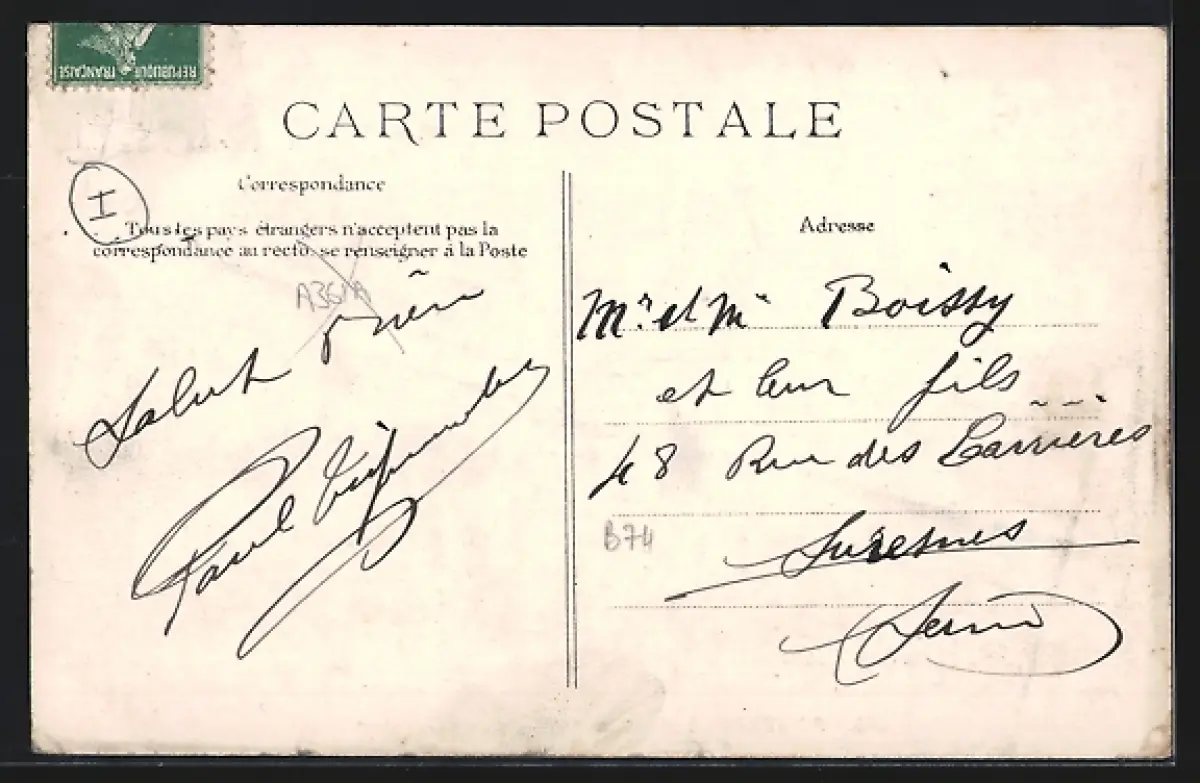 REPUBLIQUE FRANÇAISE
CARTE POSTALE
Correspondance
I
Tous les pays étrangers n'acceptent pas la
correspondance au recto, se renseigner à la Poste
A361A
Salut
Paul
Adresse
Mr et Me Boissy
et leur fils...
48 Rue des Carrières
B74
Suresnes
Seine